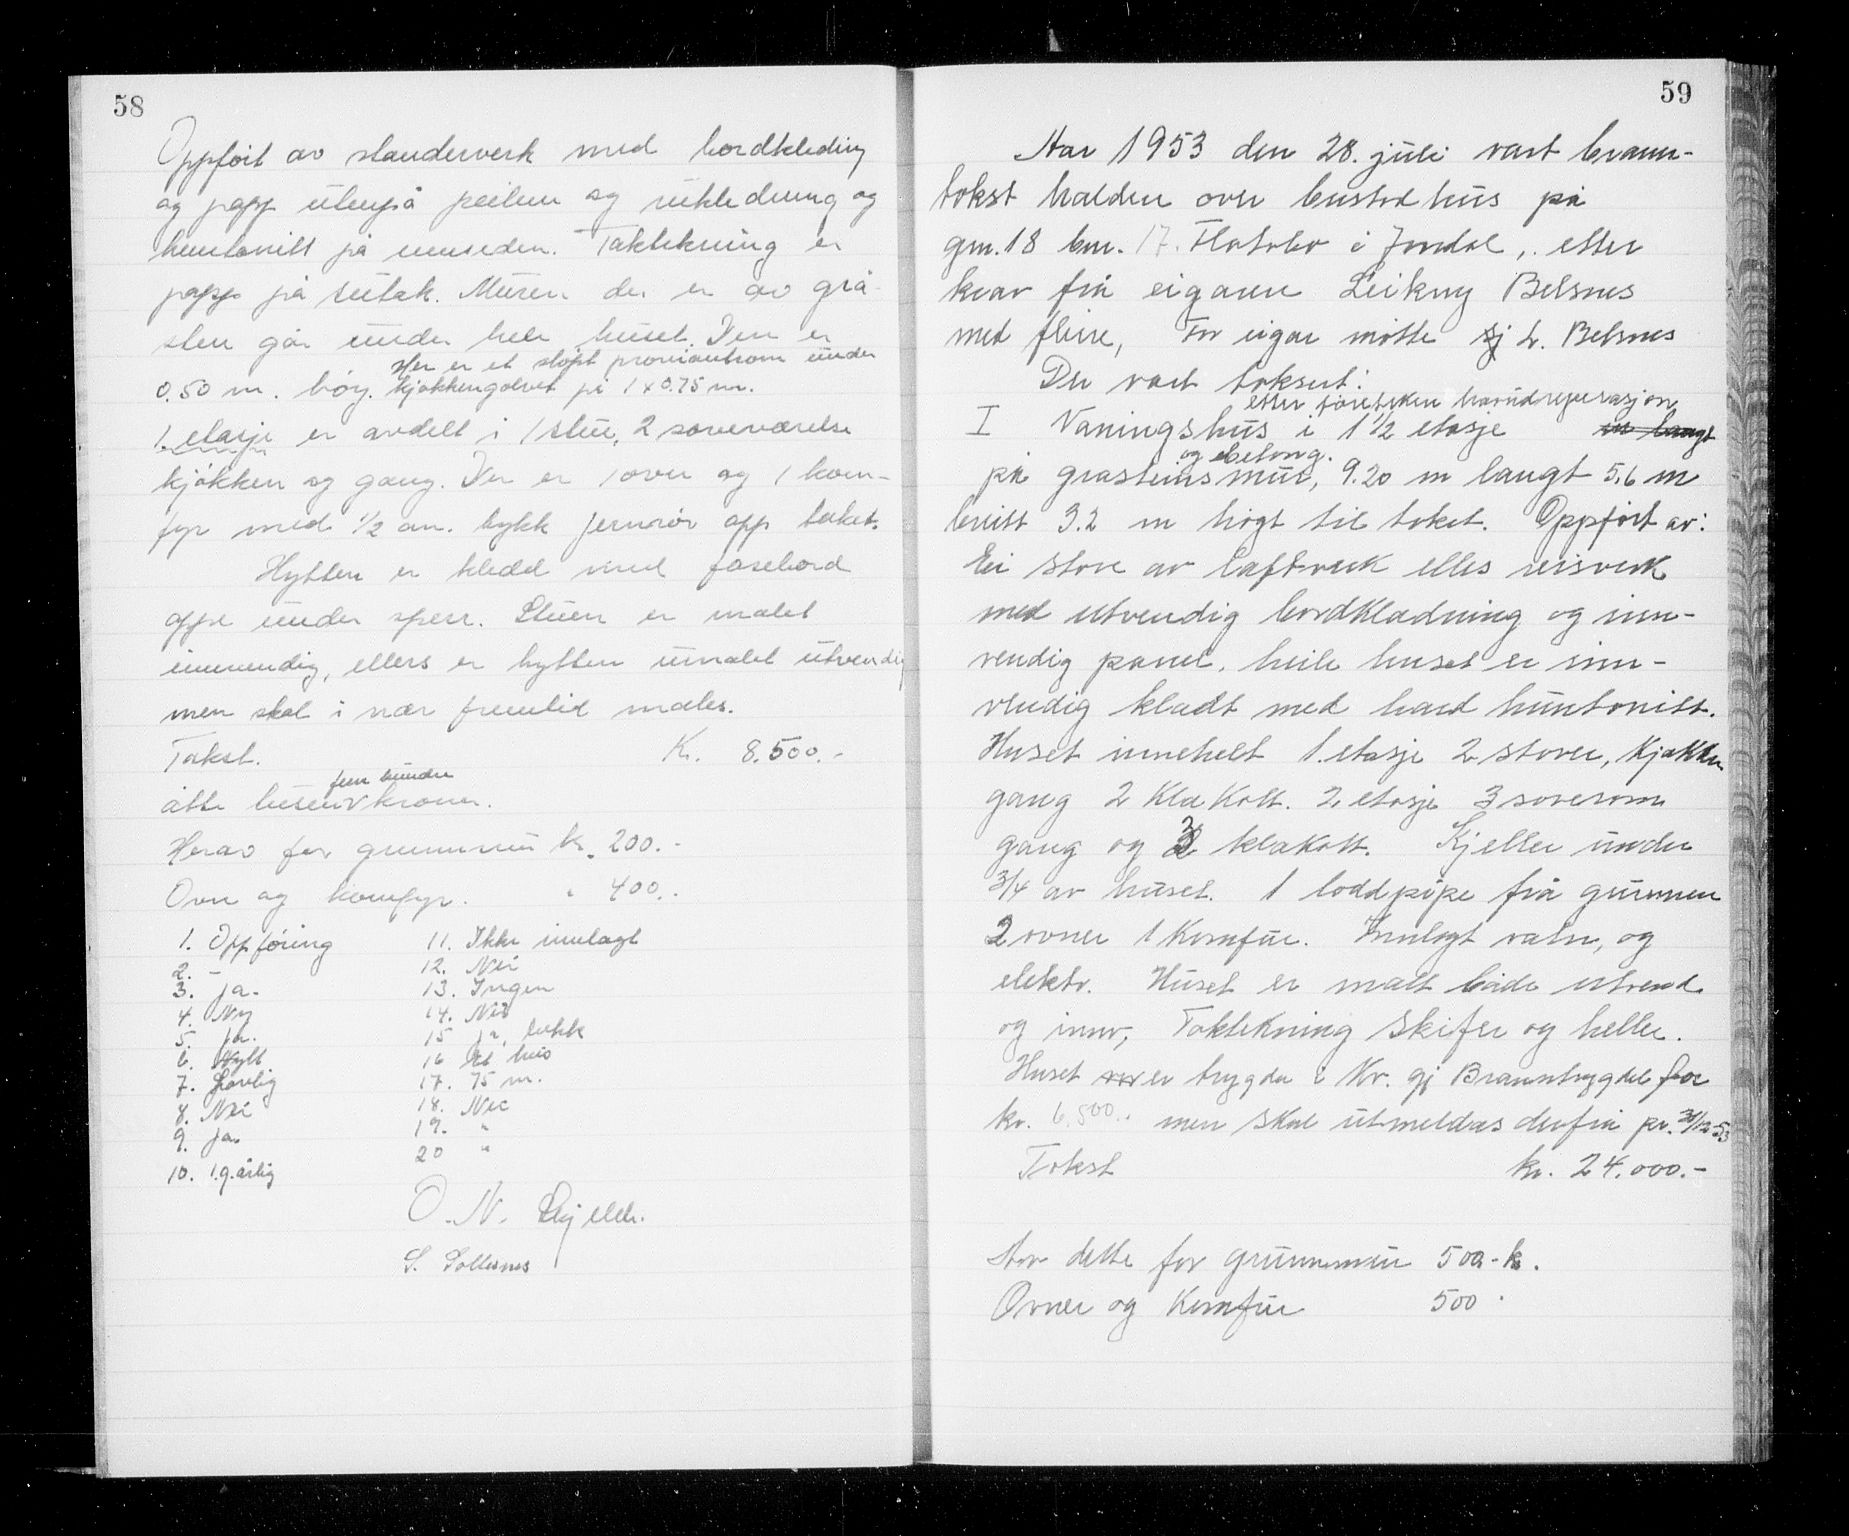 58
Oppført av standerverk med bordkleding
og papp utenpå peilun og rukledning og
huntonitt på innsiden. Taktekning er
papp på sutak. Muren der er av grå-
sten går under hele huset. Den er
Her er et støpt proviantrom under
0.50 m. høy. kjøkkengolvet på 1 x 0.75 m.
1. etasje er avdelt i 1 stue, 2 soveværelse
kjøkken og gang. Der er 1 ovn og 1 kom-
fyr med 1/2 cm. tykk jernrør opp taket.
Hytten er kledd med fasebord
oppe under sperr. Stuen er malet
innvendig, ellers er hytten umalet utvendig
men skal i nær fremtid males.
Takst. Kr. 8.500.-
fem hundre
åtte tusen kroner.
Herav for grunnmur kr. 200.-
Ovn og komfyr. " 400.-
1. Oppføring 11. Ikke innlagt
2. - 12. Nei
3. ja. 13. Ingen
4. Ny 14. Nei
5. ja. 15 ja, lukk
6. Nytt 16 et hus
7. Lovlig 17. 75 m.
8. Nei 18. Nei
9. ja. 19. "
10. 1.g. årlig 20 "
O. N. Skjelde.
S. Sollesnes
59
Aar 1953 den 28. juli vart brann-
takst halden over bustadhus på
gnr. 18 bnr. 17. Flatebø i Jondal, etter
krav frå eigaren Leikny Belsnes
med fleire, For eigar møtte sj L. Belsnes
Der vart taksert:
etter føreteken hovudreperasjon
I Vaningshus i 1 1/2 etasje in langt
og betong.
på grasteinsmur, 9.20 m langt 5,6 m
breitt 3.2 m høgt til taket. Oppført av:
Ei stove av laftverk elles reisverk
med utvendig bordkladning og inn-
vendig panel. heile huset er inn-
vendig kladt med hard huntonitt.
Huset innehelt 1. etasje 2 stover, kjøkken
gang 2 klakott. 2 etasje 3 soverom
gang og 3 klakott. Kjeller under
3/4 av huset. 1 loddpipe frå grunnen
2 ovner 1 Komfur. Innlagt vatn, og
elektr. Huset er malt både utvend.
og innv, Taktekning skifer og heller.
Huset er trygda i Kr. gj Branntrygdel for
kr. 6.500.- men skal utmeldas derfrå pr. 31/12-53
Takst kr. 24.000.-
Av dette for grunnmur 500-k.
Ovner og Komfur 500